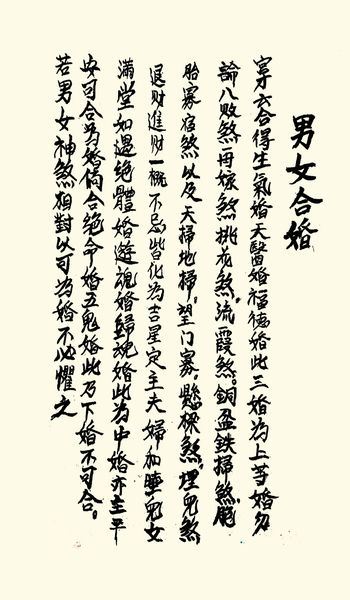 男女合婚
穿六合得生氣婚天醫婚福德婚此三婚為上等婚勿
論八敗煞再嫁煞桃花煞流霞煞。銅盆鉄掃煞胞
胎寡宿煞以及天掃地掃。望门寡懸樑煞。埋兒煞
退财進财一概不忌皆化為吉星定主夫婦和睦兒女
滿堂如遇絕體婚遊魂婚歸魂婚此為中婚亦主平
安可合為婚倘合絕命婚五鬼婚此乃下婚不可合。
若男女神煞相對以可為婚不必懼之